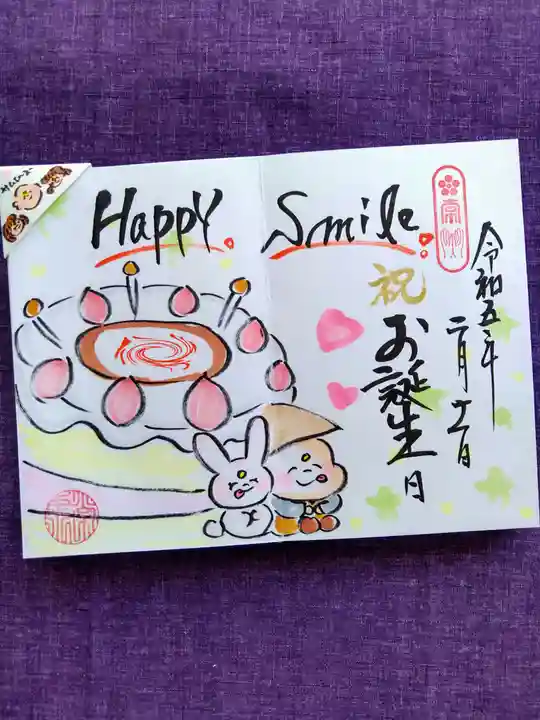 Happy Smile
祝
お誕生日
令和五年
二月十一日